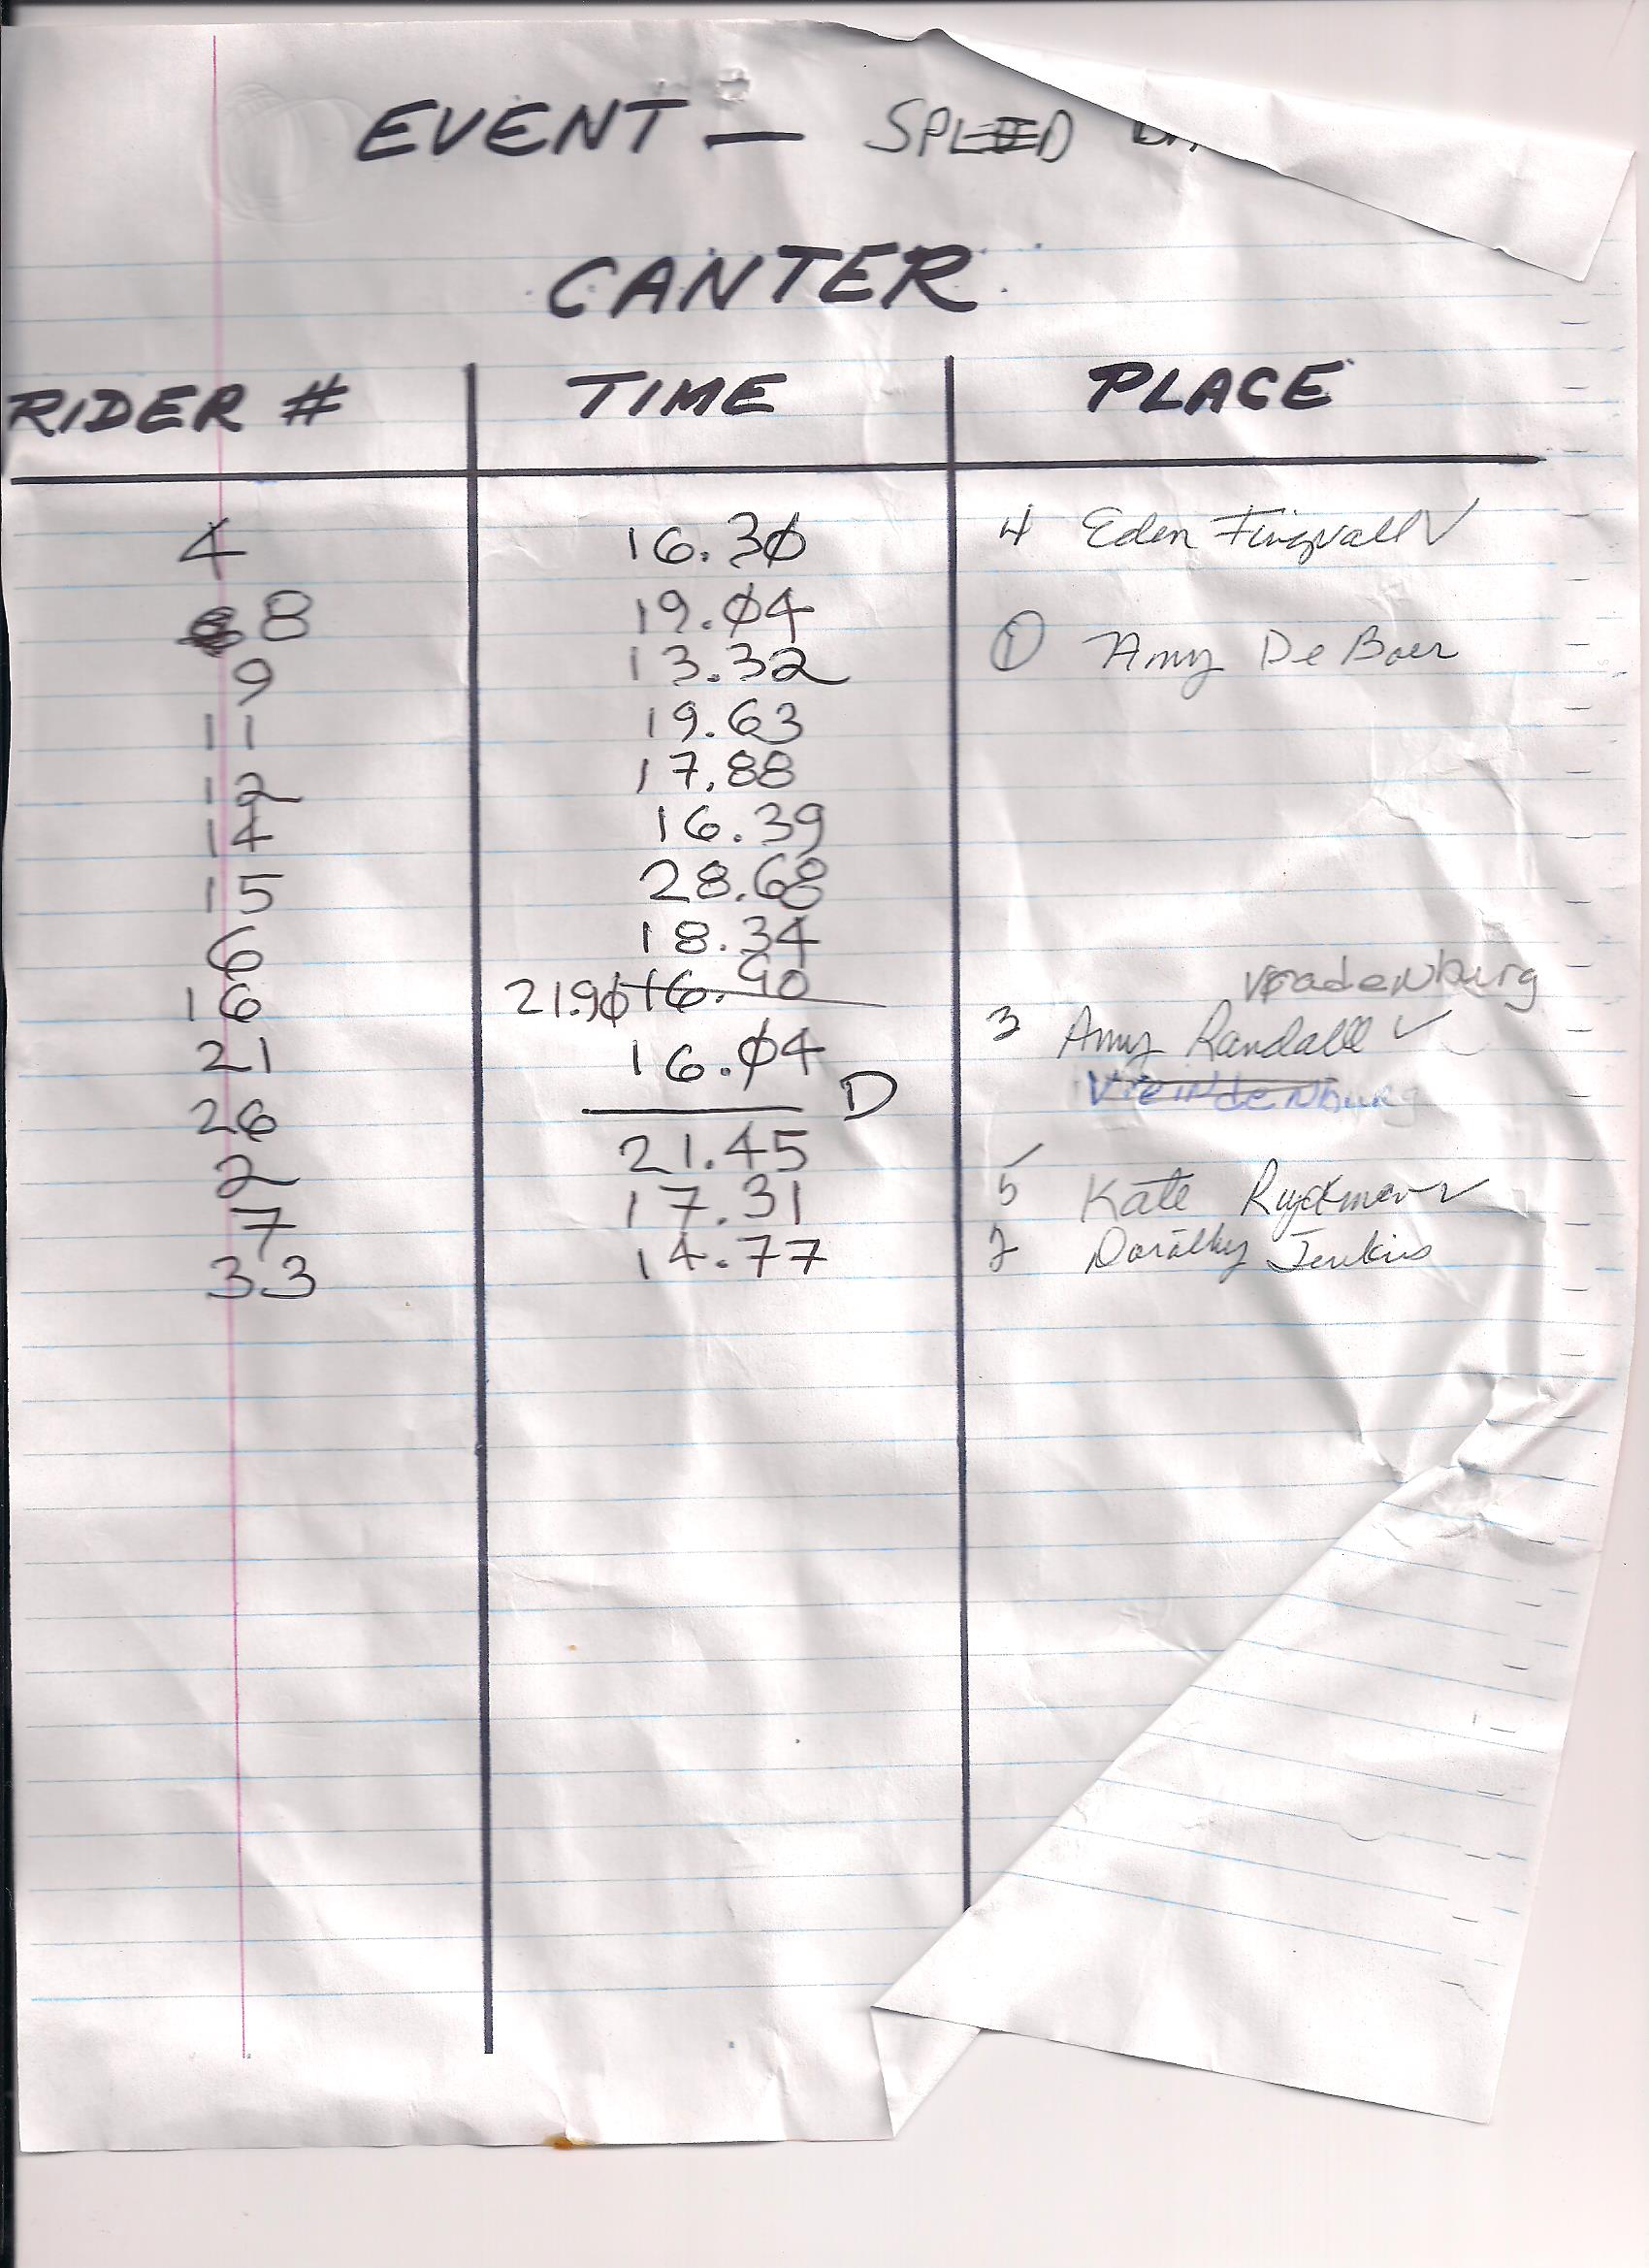 EVENT — SPEED
CANTER
RIDER # TIME PLACE
4 16.30 4 Eden ✓
8 19.04
9 13.32 1 Amy De Boer
11 19.63
12 17.88
14 16.39
15 28.68
6 18.34
Vradenburg
16 21.90 16.90
21 16.04 3 Amy Randall ✓
26 D
2 21.45
7 17.31 5 Kate Ryckman ✓
33 14.77 2 Dorothy Jenkins